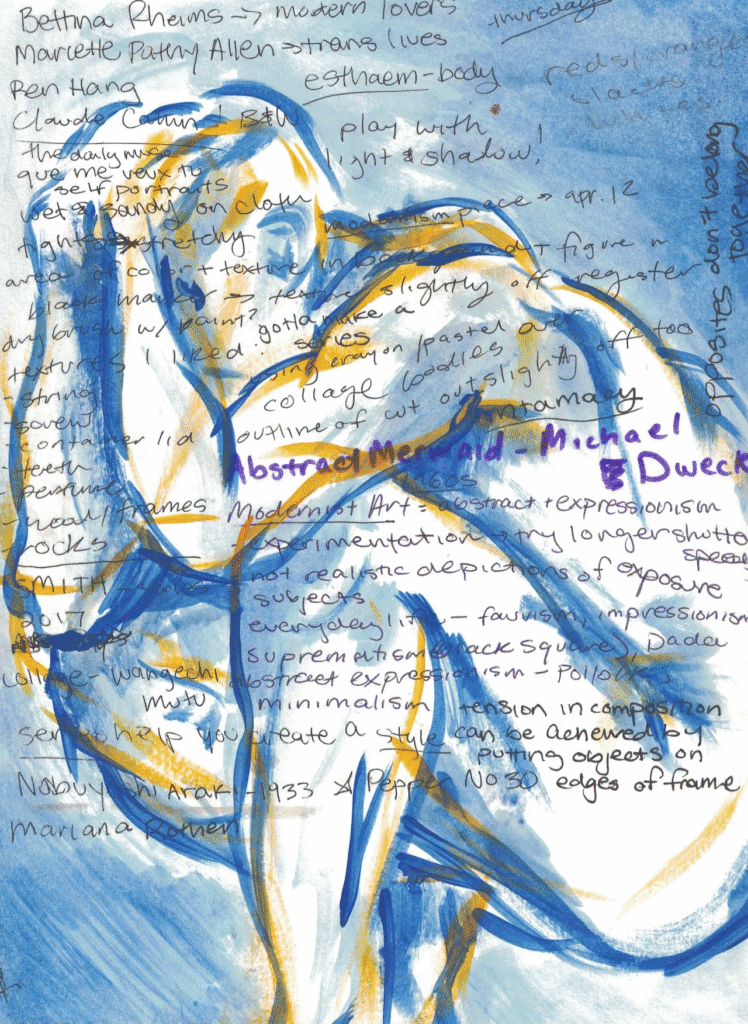 Bettina Rheims → modern lovers
thursday
Mariette Pathy Allen → trans lives
Ren Hang
esthaem-body
reds/orange
Claude Cahun B&W
play with
light & shadow!
the daily muse
que me veux tu
self portraits
wet & sandy, on cloth
opposites don't belong
together
modernism → apr. 12
tights stretchy
area of color + texture in background + figure in
black marker → texture slightly off register
dry brush w/ paint?
gotta make a
series
textures I liked:
using crayon/pastel over
- string
collage bodies
- container lid
outline of cut out slightly off too
intamacy
- teeth
- perfume
Abstract Mermaid - Michael
Dweck
- head/frames
- rocks
Modernist Art = abstract + expressionism
experimentation → try longer shutter
speed
SMITH
not realistic depictions of exposure
subjects
2017
everyday life - fauvism, impressionism
suprematism (black square), Dada
collage - wangechi
mutu
abstract expressionism - Pollock
minimalism
tension in composition
can be achieved by
putting objects on
edges of frame
series help you create a style
Nobuyoshi Araki -1933 Pepper No 30
Mariana Rothen